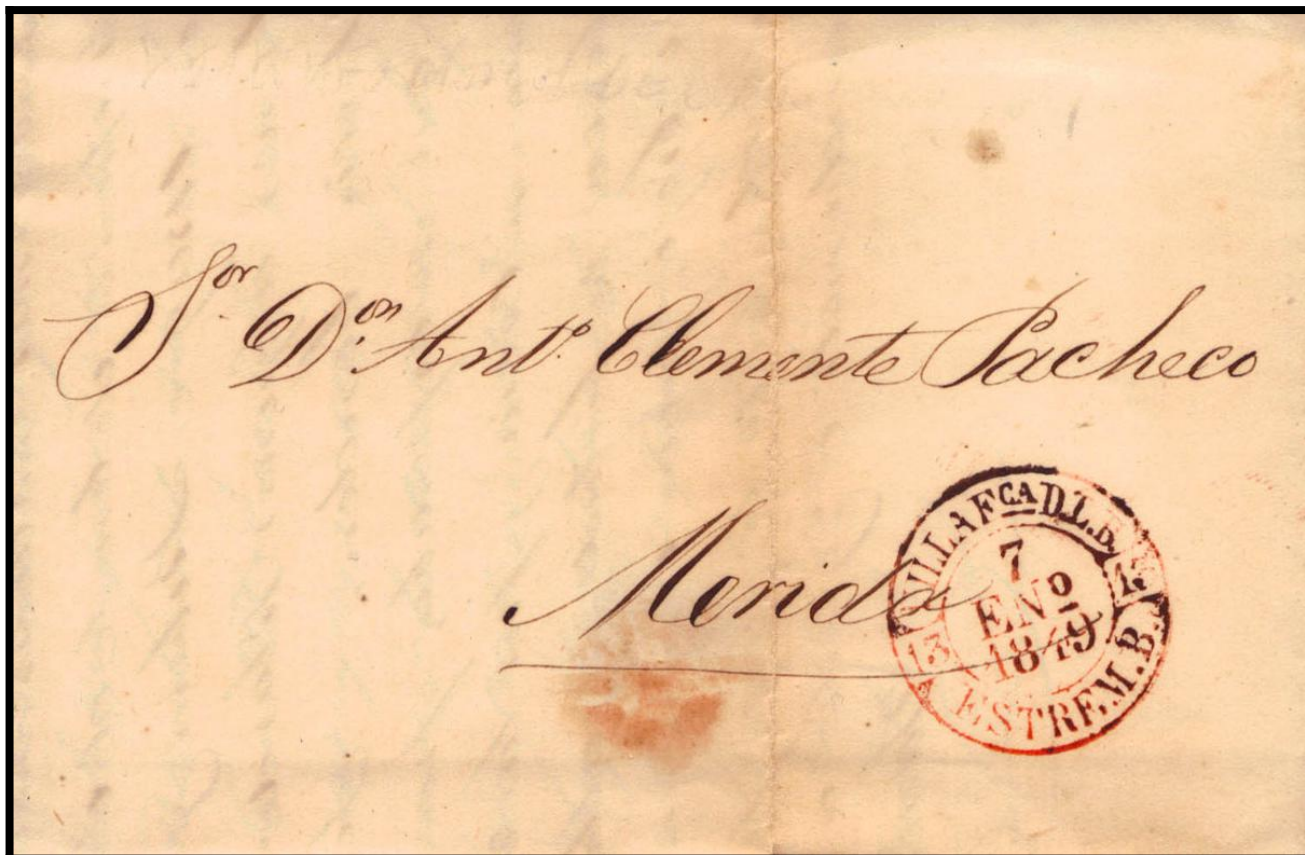 Sor Don Anto. Clemente Pacheco
Merida
VILLAFCA D L. B.
13 13
7
ENO
1849
ESTREM. B.